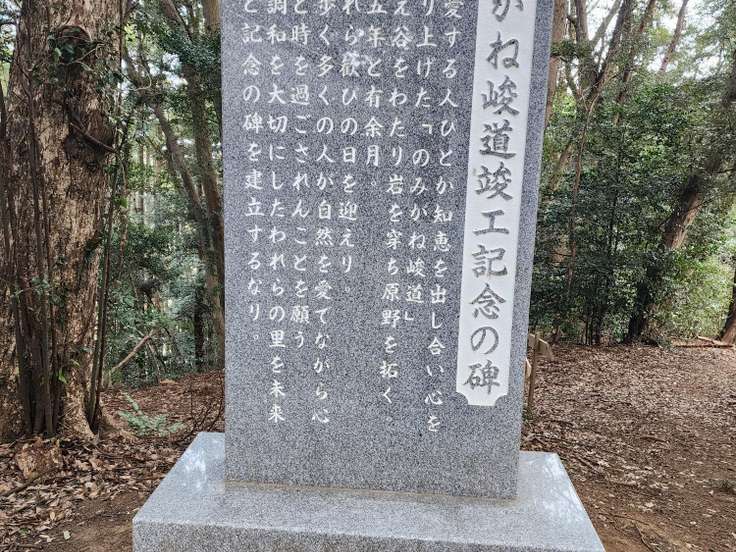 がね峻道竣工記念の碑
愛する人ひとか知恵を出し合い心を
り上げた「のみがね峻道」
え谷をわたり岩を穿ち原野を拓く。
五年と有余月。
れら歓びの日を迎えり。
歩く多くの人が自然を愛でながら心
と時を過ごされんことを願う。
調和を大切にしたわれらの里を未来
と記念の碑を建立するなり。